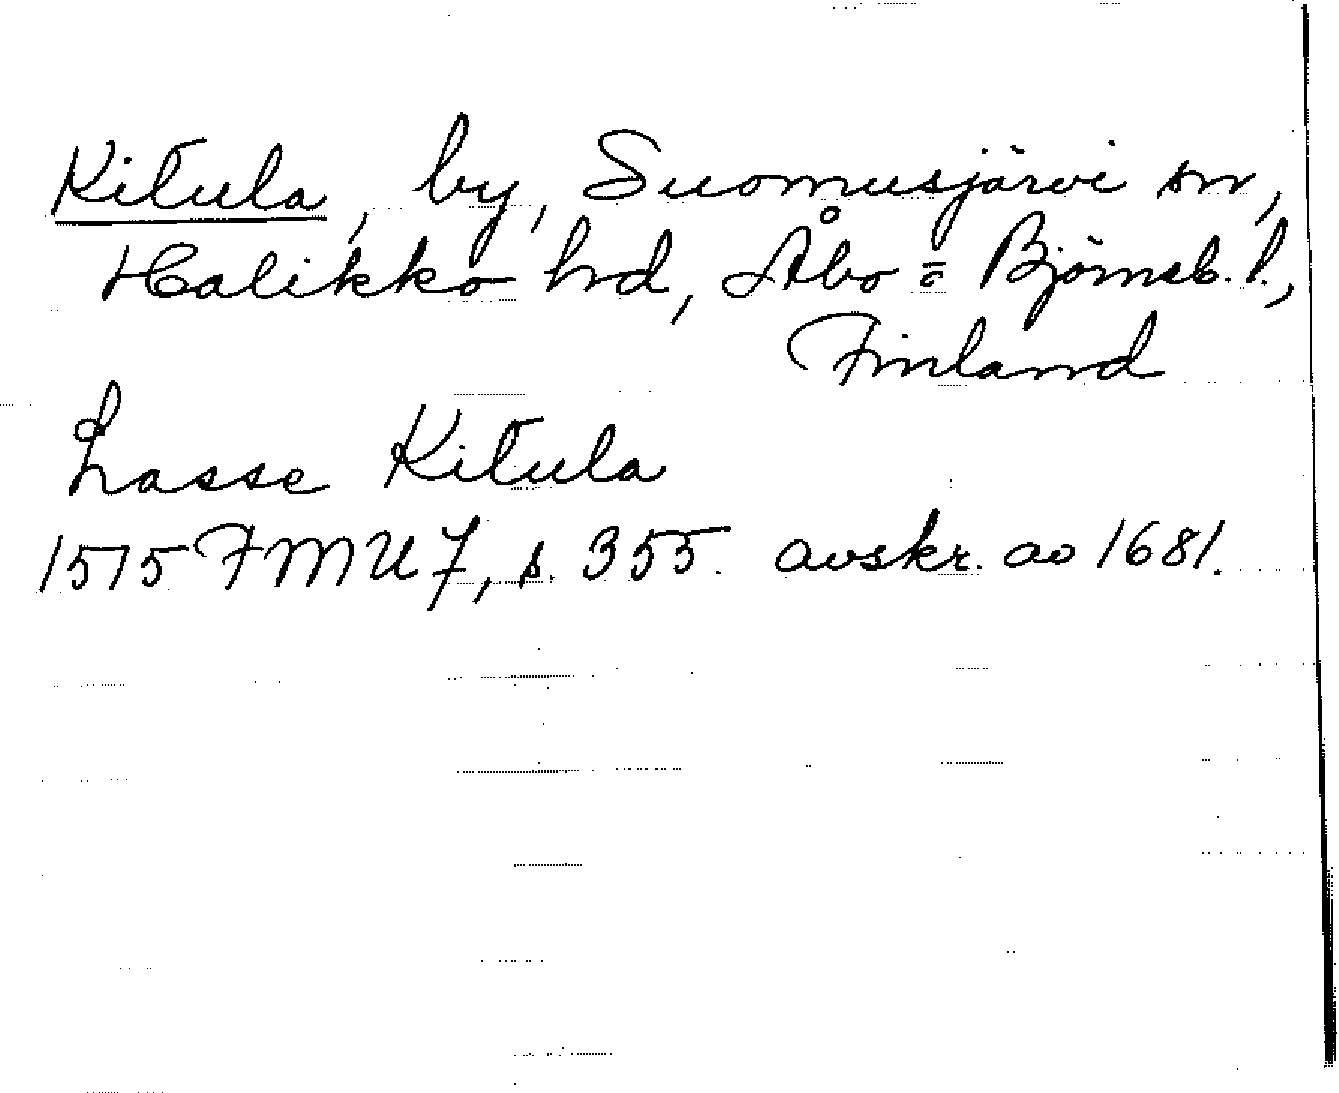 Kitula, by, Suomusjärvi sn,
Halikko hrd, Åbo o Björneb. l.,
Finland
Lasse Kitula
1575 FMU 7, s. 355. avskr. av 1681.